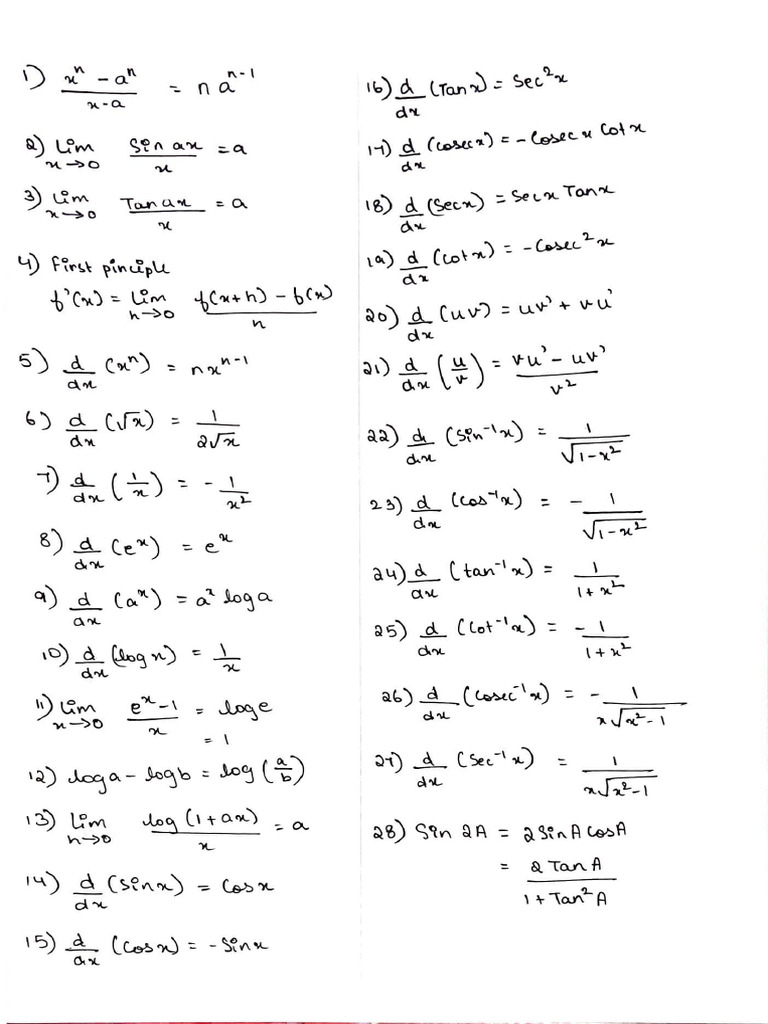 1) xⁿ - aⁿ / x-a = n aⁿ⁻¹
2) Lim x→0 Sin ax / x = a
3) Lim x→0 Tan ax / x = a
4) First pinciple
f'(x) = Lim h→0 f(x+h) - f(x) / h
5) d/dx (xⁿ) = nxⁿ⁻¹
6) d/dx (√x) = 1 / 2√x
7) d/dx (1/x) = - 1/x²
8) d/dx (eˣ) = eˣ
9) d/dx (aˣ) = aˣ log a
10) d/dx (log x) = 1/x
11) Lim x→0 eˣ-1 / x = log e
= 1
12) log a - log b = log (a/b)
13) Lim h→0 log (1+ax) / x = a
14) d/dx (sin x) = Cos x
15) d/dx (Cos x) = - Sin x
16) d/dx (Tan x) = Sec²x
17) d/dx (cosec x) = - Cosec x Cot x
18) d/dx (Sec x) = Sec x Tan x
19) d/dx (cot x) = - Cosec²x
20) d/dx (uv) = uv' + vu'
21) d/dx (u/v) = vu' - uv' / v²
22) d/dx (Sin⁻¹x) = 1 / √1-x²
23) d/dx (Cos⁻¹x) = - 1 / √1-x²
24) d/dx (tan⁻¹x) = 1 / 1+x²
25) d/dx (Cot⁻¹x) = - 1 / 1+x²
26) d/dx (Cosec⁻¹x) = - 1 / x√x²-1
27) d/dx (Sec⁻¹x) = 1 / x√x²-1
28) Sin 2A = 2 Sin A Cos A
= 2 Tan A / 1 + Tan²A